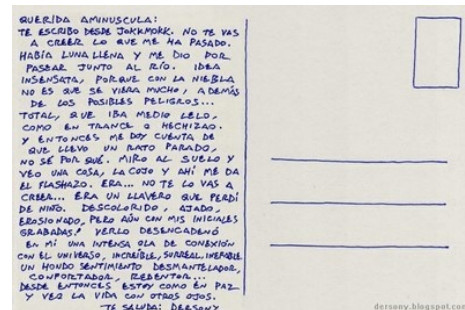 QUERIDA AMINUSCULA:
TE ESCRIBO DESDE JOKKMOKK. NO TE VAS
A CREER LO QUE ME HA PASADO.
HABÍA LUNA LLENA Y ME DIO POR
PASEAR JUNTO AL RÍO. IDEA
INSENSATA, PORQUE CON LA NIEBLA
NO ES QUE SE VIERA MUCHO, ADEMÁS
DE LOS POSIBLES PELIGROS...
TOTAL, QUE IBA MEDIO LELO,
COMO EN TRANCE O HECHIZAO.
Y ENTONCES ME DOY CUENTA DE
QUE LLEVO UN RATO PARADO,
NO SÉ POR QUÉ. MIRO AL SUELO Y
VEO UNA COSA, LA COJO Y AHÍ ME DA
EL FLASHAZO. ERA... NO TE LO VAS A
CREER... ERA UN LLAVERO QUE PERDÍ
DE NIÑO. DESCOLORIDO, AJADO,
EROSIONADO, PERO AÚN CON MIS INICIALES
GRABADAS! VERLO DESENCADENÓ
EN MÍ UNA INTENSA OLA DE CONEXIÓN
CON EL UNIVERSO, INCREÍBLE, SURREAL, INEFABLE
UN HONDO SENTIMIENTO DESMANTELADOR,
CONFORTADOR, REDENTOR...
DESDE ENTONCES ESTOY COMO EN PAZ
Y VEO LA VIDA CON OTROS OJOS.
TE SALUDA: DERSONY
dersony.blogspot.com